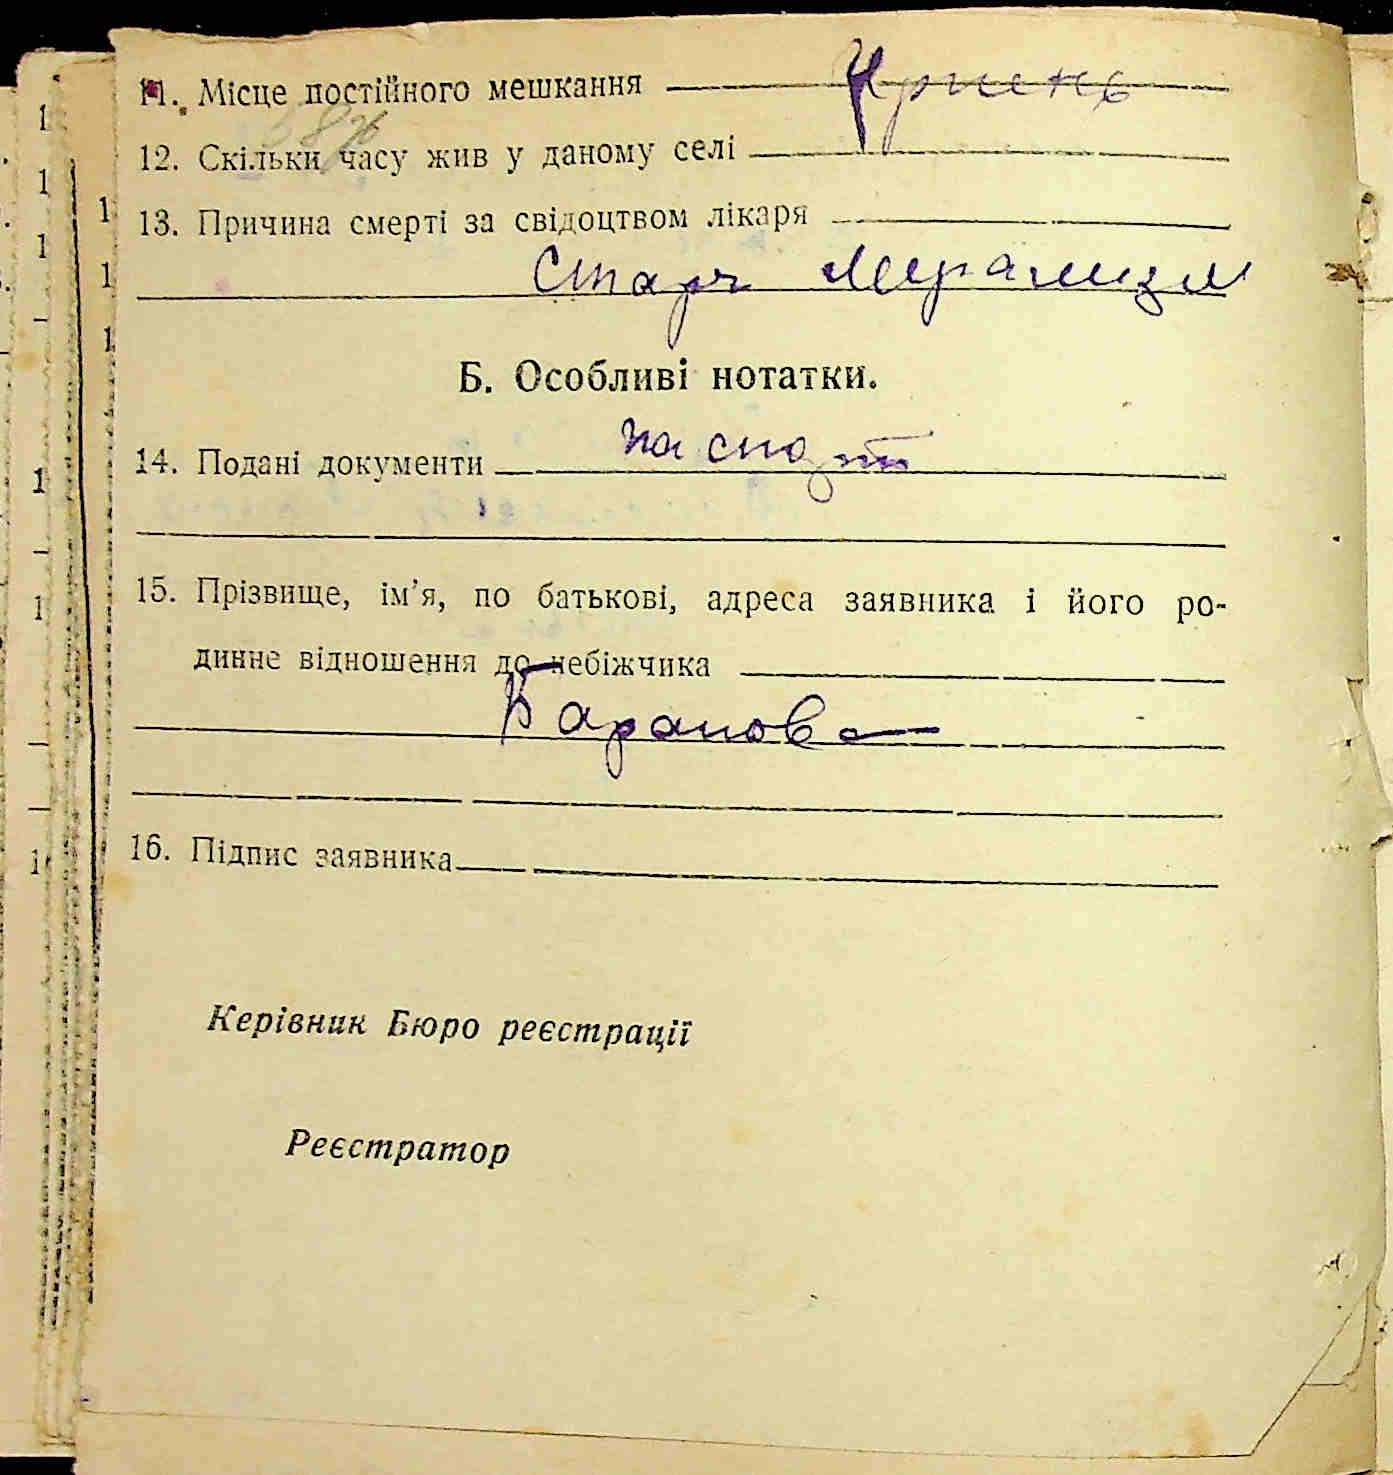 11. Місце постійного мешкання Ірпень
12. Скільки часу жив у даному селі
13. Причина смерті за свідоцтвом лікаря
Старч Маразм
Б. Особливі нотатки.
14. Подані документи паспорт
15. Прізвище, ім’я, по батькові, адреса заявника і його ро-
динне відношення до небіжчика
Баранова
16. Підпис заявника
Керівник Бюро реєстрації
Реєстратор